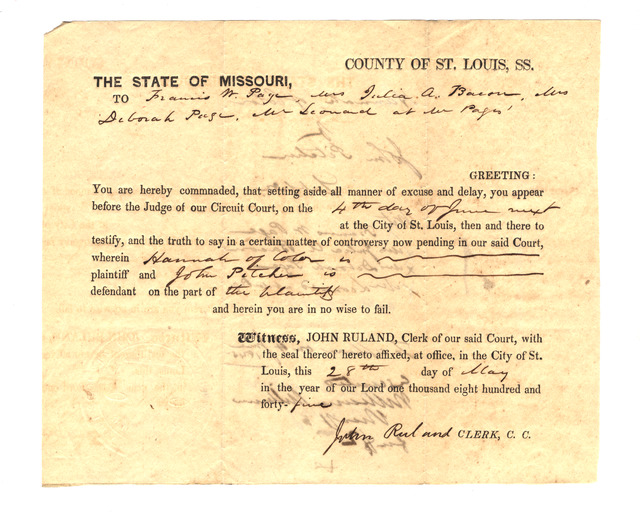 COUNTY OF ST. LOUIS, SS.
THE STATE OF MISSOURI,
TO Francis W. Page, Mrs Julia A. Bacon, Mrs
Deborah Page, Mr Leonard at Mr Pages'
GREETING:
You are hereby commnaded, that setting aside all manner of excuse and delay, you appear
before the Judge of our Circuit Court, on the 4th day of June next
at the City of St. Louis, then and there to
testify, and the truth to say in a certain matter of controversy now pending in our said Court,
wherein Hannah of Color is
plaintiff and John Pitcher is
defendant on the part of the plaintiff
and herein you are in no wise to fail.
Witness, JOHN RULAND, Clerk of our said Court, with
the seal thereof hereto affixed, at office, in the City of St.
Louis, this 28th day of May
in the year of our Lord one thousand eight hundred and
forty-five
John Ruland CLERK, C. C.